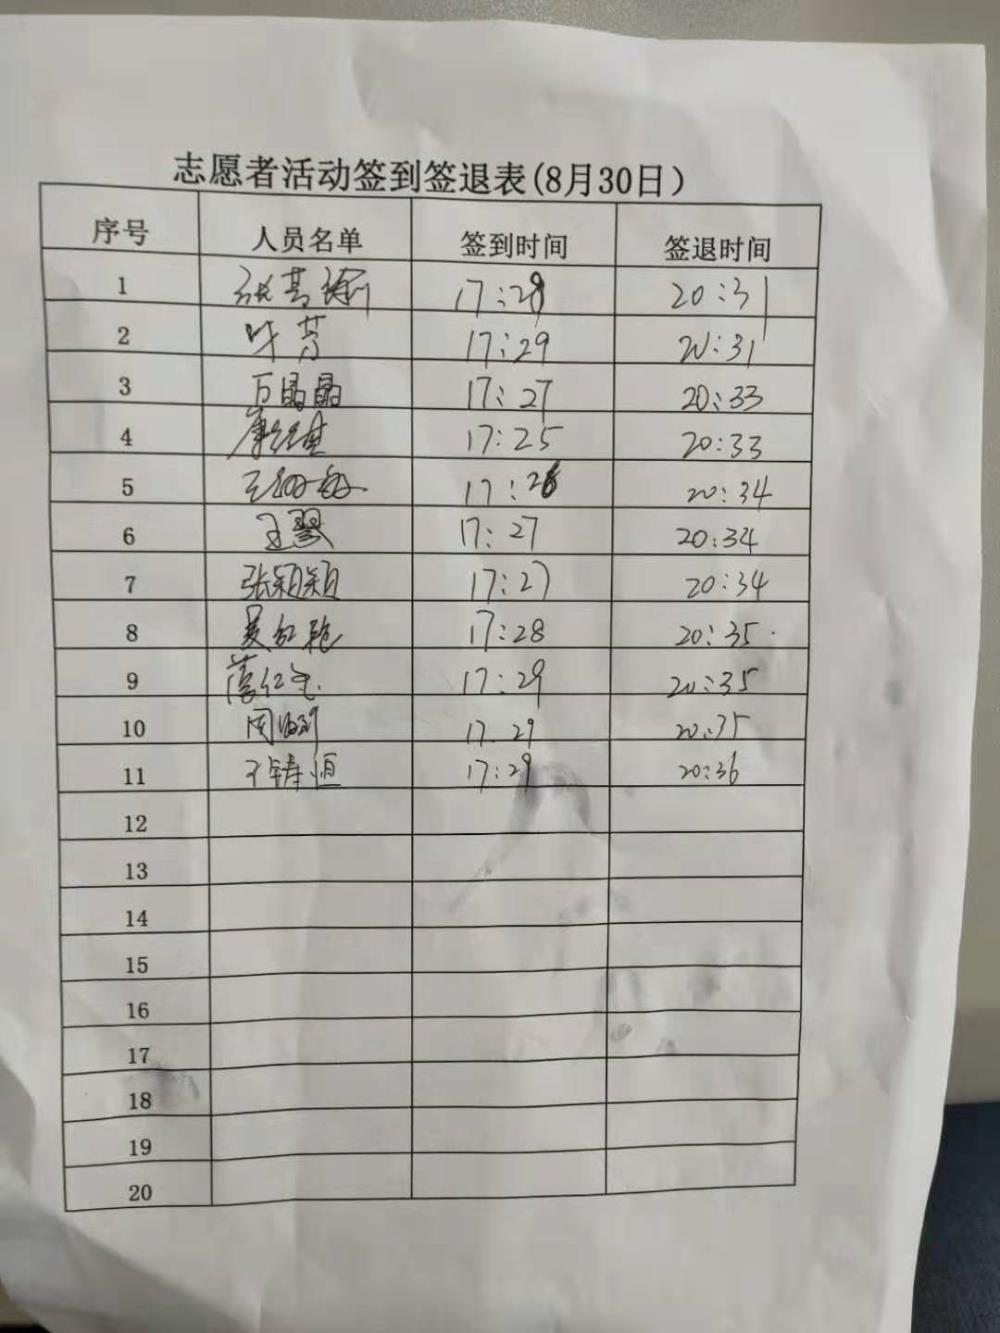 志愿者活动签到签退表(8月30日)
序号 人员名单 签到时间 签退时间
1 17:28 20:31
2 叶芳 17:29 20:31
3 万晶晶 17:27 20:33
4 17:25 20:33
5 17:28 20:34
6 王翠 17:27 20:34
7 张颖颖 17:27 20:34
8 吴红艳 17:28 20:35
9 17:29 20:35
10 17.29 20:35
11 王铸恒 17:29 20:36
12
13
14
15
16
17
18
19
20